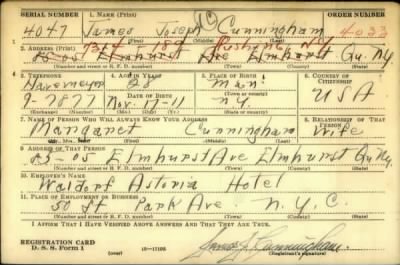 SERIAL NUMBER 1. NAME (Print) ORDER NUMBER
4047 James Joseph Cunningham 4033
(First) (Middle) (Last)
2. ADDRESS (Print) Flushing, NY
85-05 Elmhurst Ave Elmhurst Qu. NY.
(Number and street or R. F. D. number) (Town) (County) (State)
3. TELEPHONE 4. AGE IN YEARS 5. PLACE OF BIRTH 6. COUNTRY OF CITIZENSHIP
Havemeyer 28 Man
DATE OF BIRTH (Town or county)
9-7877 Nov-17-11 N.Y. USA
(Exchange) (Number) (Mo.) (Day) (Yr.) (State or country)
7. NAME OF PERSON WHO WILL ALWAYS KNOW YOUR ADDRESS 8. RELATIONSHIP OF THAT PERSON
Margaret Cunningham Wife
(Mr., Mrs., Miss) (First) (Middle) (Last)
9. ADDRESS OF THAT PERSON
85-05 Elmhurst Ave Elmhurst Qu. NY
(Number and street or R. F. D. number) (Town) (County) (State)
10. EMPLOYER'S NAME
Waldorf Astoria Hotel
11. PLACE OF EMPLOYMENT OR BUSINESS
50 St Park Ave. N.Y.C.
(Number and street or R. F. D. number) (Town) (County) (State)
I AFFIRM THAT I HAVE VERIFIED ABOVE ANSWERS AND THAT THEY ARE TRUE.
REGISTRATION CARD
D. S. S. Form 1 (over) 16-17105 James J Cunningham
(Registrant's signature)